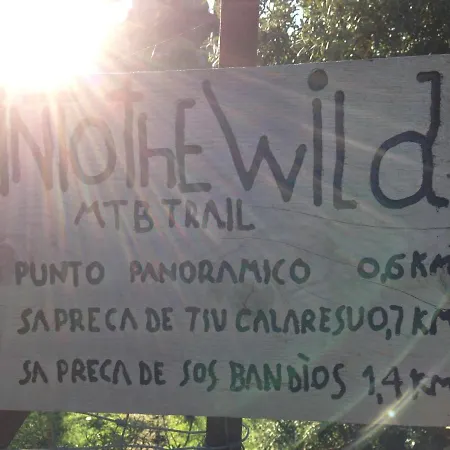 INTO THE WILD
MTB TRAIL
PUNTO PANORAMICO 0,6 KM
SA PRECA DE TIU CALARESU 0,7 KM
SA PRECA DE SOS BANDÌOS 1,4 KM